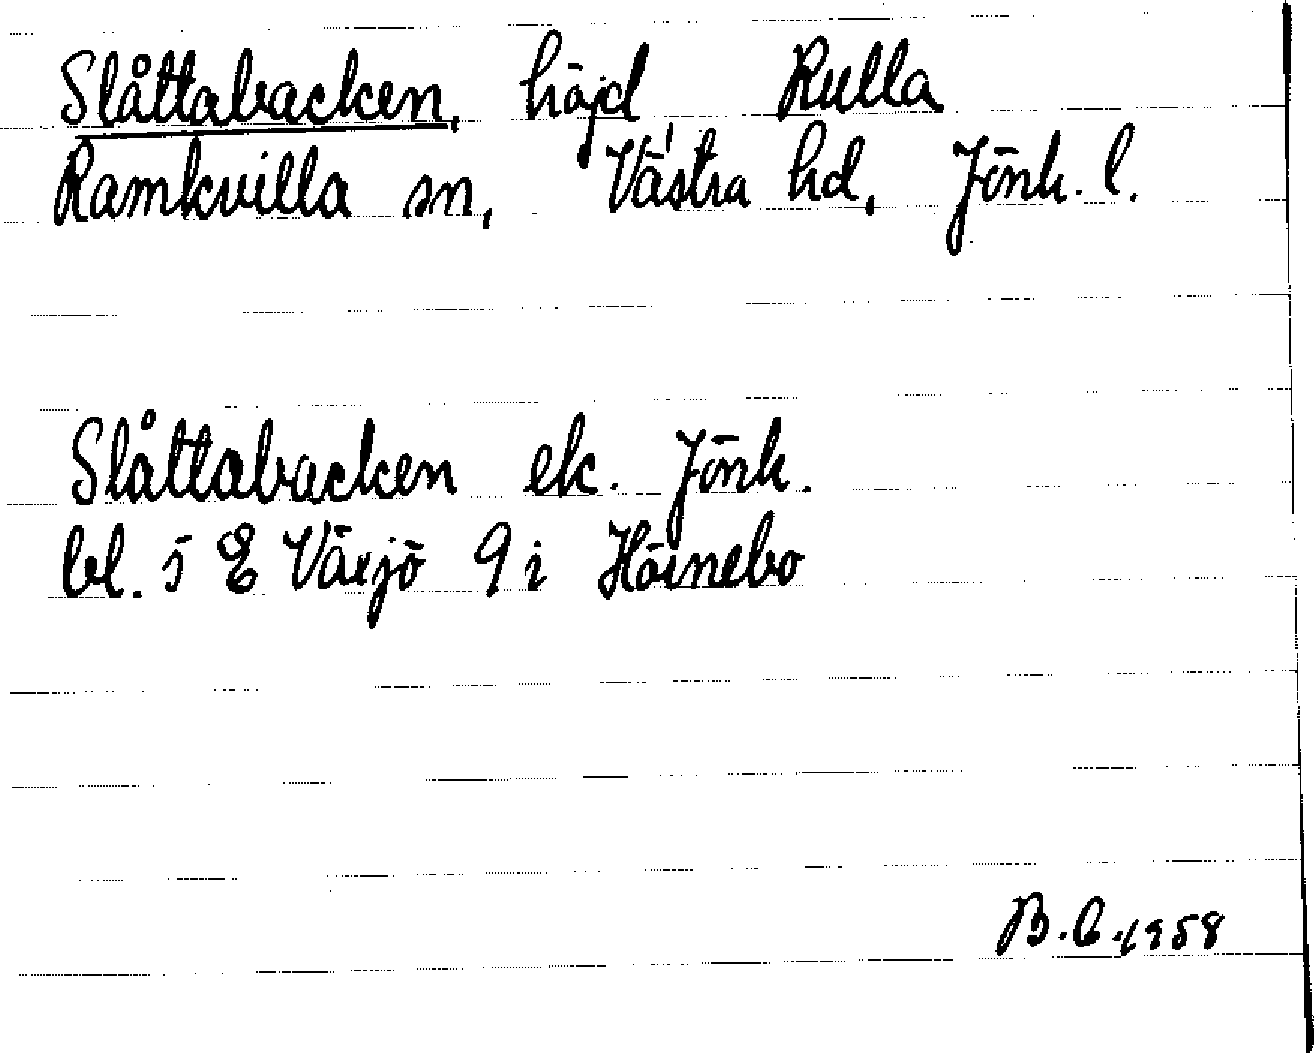 Slåttabacken, höjd Rulla
Ramkvilla sn, Västra hd, Jönk. l.
Slåttabacken ek. Jönk.
bl. 5 E Växjö 9 i Hörnebo
B.C. 1958